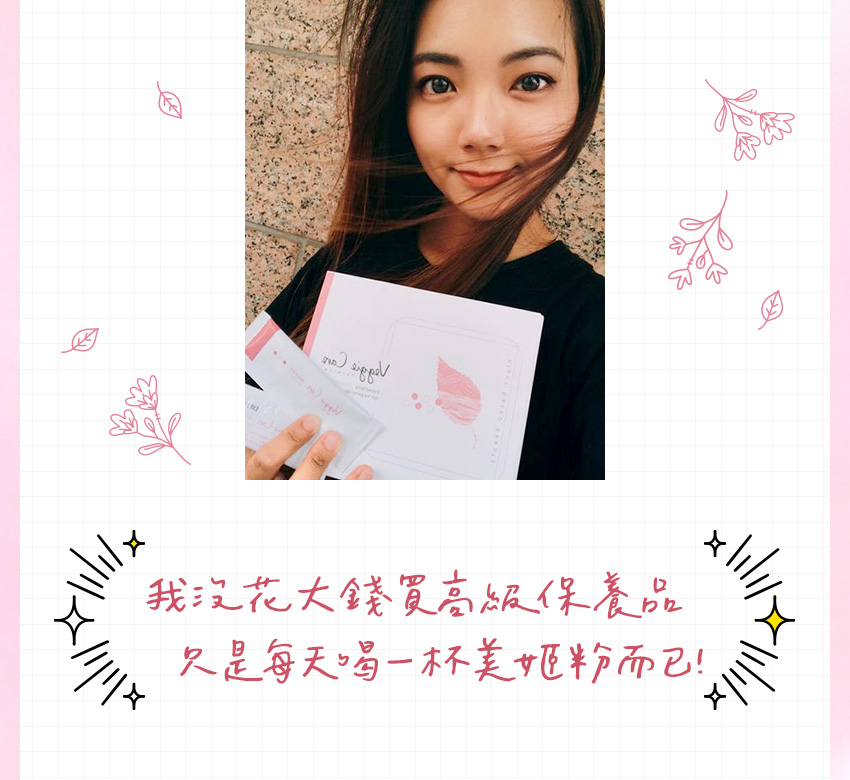 Veggie Care
Veggie Care
我沒花大錢買高級保養品
只是每天喝一杯美姬粉而已!